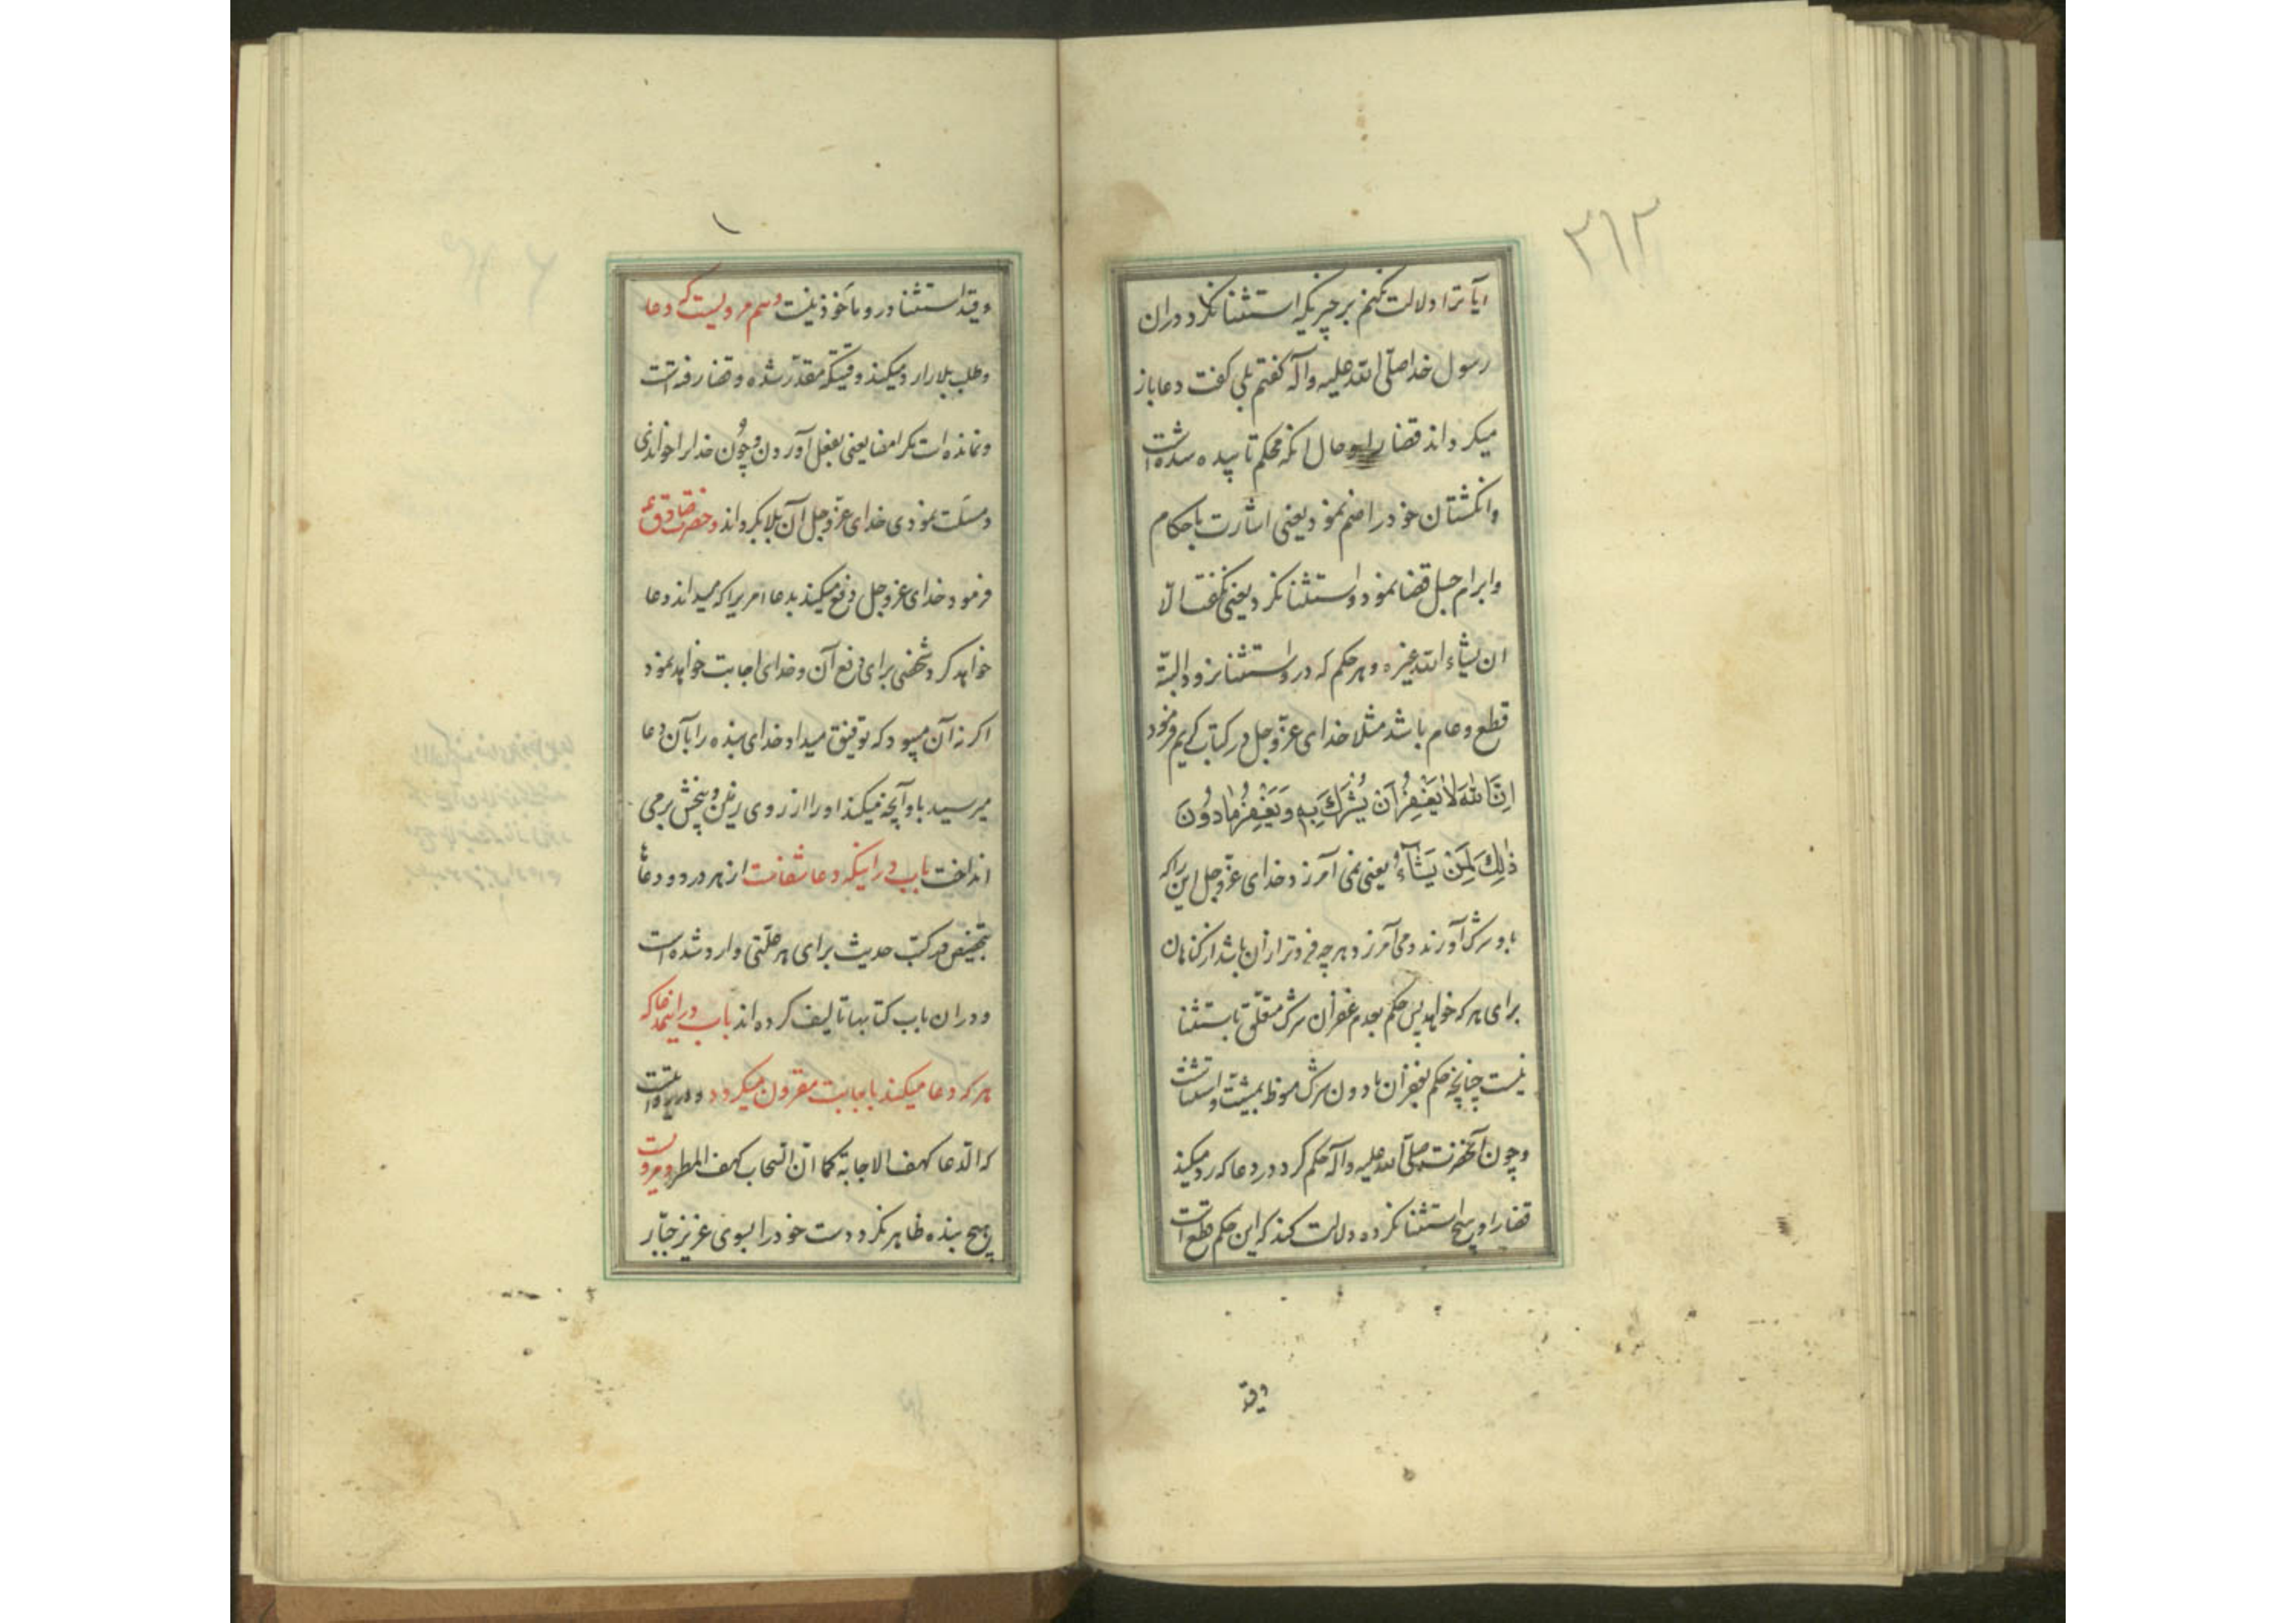 ۳۱۳
آیا ترا دلالت نکنم بر چیزیکه استثنا نکرد در ان
رسول خدا صلّی الله علیه وآله گفتم بلی گفت دعا باز
میگرداند قضا را و حال انکه محکم تابیده شده است
وانگشتان خود را ضم نمود یعنی اشارت باحکام
وابرام حبل قضا نمود و استثنا نکرد یعنی نگفت الّا
ان یشاء الله غیره و هر حکم که در و استثنا نرود البتّه
قطع و عام باشد مثلا خدای عزّوجل در کتاب کریم فرمود
اِنَّ اللهَ لا یَغْفِرُ اَن یُشْرَکَ بِهِ وَ یَغْفِرُ مٰا دُونَ
ذٰلِکَ لِمَنْ یَشآءُ یعنی نمی آمرزد خدای عزّوجل این را که
باو شرک آورند و می آمرزد هر چه فروتر از ان باشد از گناهان
برای هر که خواهد پس حکم بعدم غفران شرک متعلّق باستثنا
نیست چنانچه حکم بغفران مادون شرک منوط بمشیّت و استثناست
وچون آنحضرت صلّی الله علیه وآله حکم کرد در دعا که رد میکند
قضا را و هیچ استثنا نکرده دلالت کند که این حکم قطع است
وقید
وقید استثنا در و ماخوذ نیست وهم مرویست که دعا
وطلب بلا را رد میکند وقتیکه مقدّر شده و قضا رفته است
ونمانده است مگر امضا یعنی بفعل آوردن و چون خدا را خواندی
ومسئلت نمودی خدای عزّوجل آن بلا بگرداند و حضرت صادق ع
فرمود خدای عزوجل دفع میکند بدعا امریرا که میداند دعا
خواهد کرد شخصی برای دفع آن و خدای اجابت خواهد نمود
اگر نه آن میبود که توفیق میداد خدای بنده را بآن دعا
میرسید باو آنچه میکند او را از روی زمین و بیخش بر می
انداخت باب در اینکه دعا شفاست از هر درد و دعا
بتخصیص در کتب حدیث برای هر علّتی وارد شده است
ودر ان باب کتابها تالیف کرده اند باب در اینجا که
هر که دعا میکند باجابت مقرون میگردد و در روایتست
که الدّعا کهف الاجابة کما انّ السّحاب کهف المطر و مرویست
هیچ بنده ظاهر نکرد دست خود را بسوی عزیز جبّار